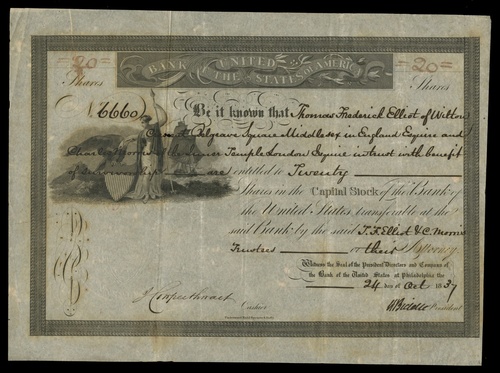 BANK OF THE UNITED STATES OF AMERICA
20 20
Shares Shares
No 6660 Be it known that Thomas Frederick Elliot of Wilton
Belgrave Square Middlesex in England Esquire and
Charles Morris of the Inner Temple London Esquire in trust with benefit
of Survivorship are entitled to Twenty
Shares in the Capital Stock of the Bank of
the United States transferable at the
said Bank by the said T. F. Elliot & C. Morris
Trustees or their Attorney
Witness the Seal of the President Directors and Company of
the Bank of the United States at Philadelphia the
24 day of Oct 1837
Cashier N Biddle President